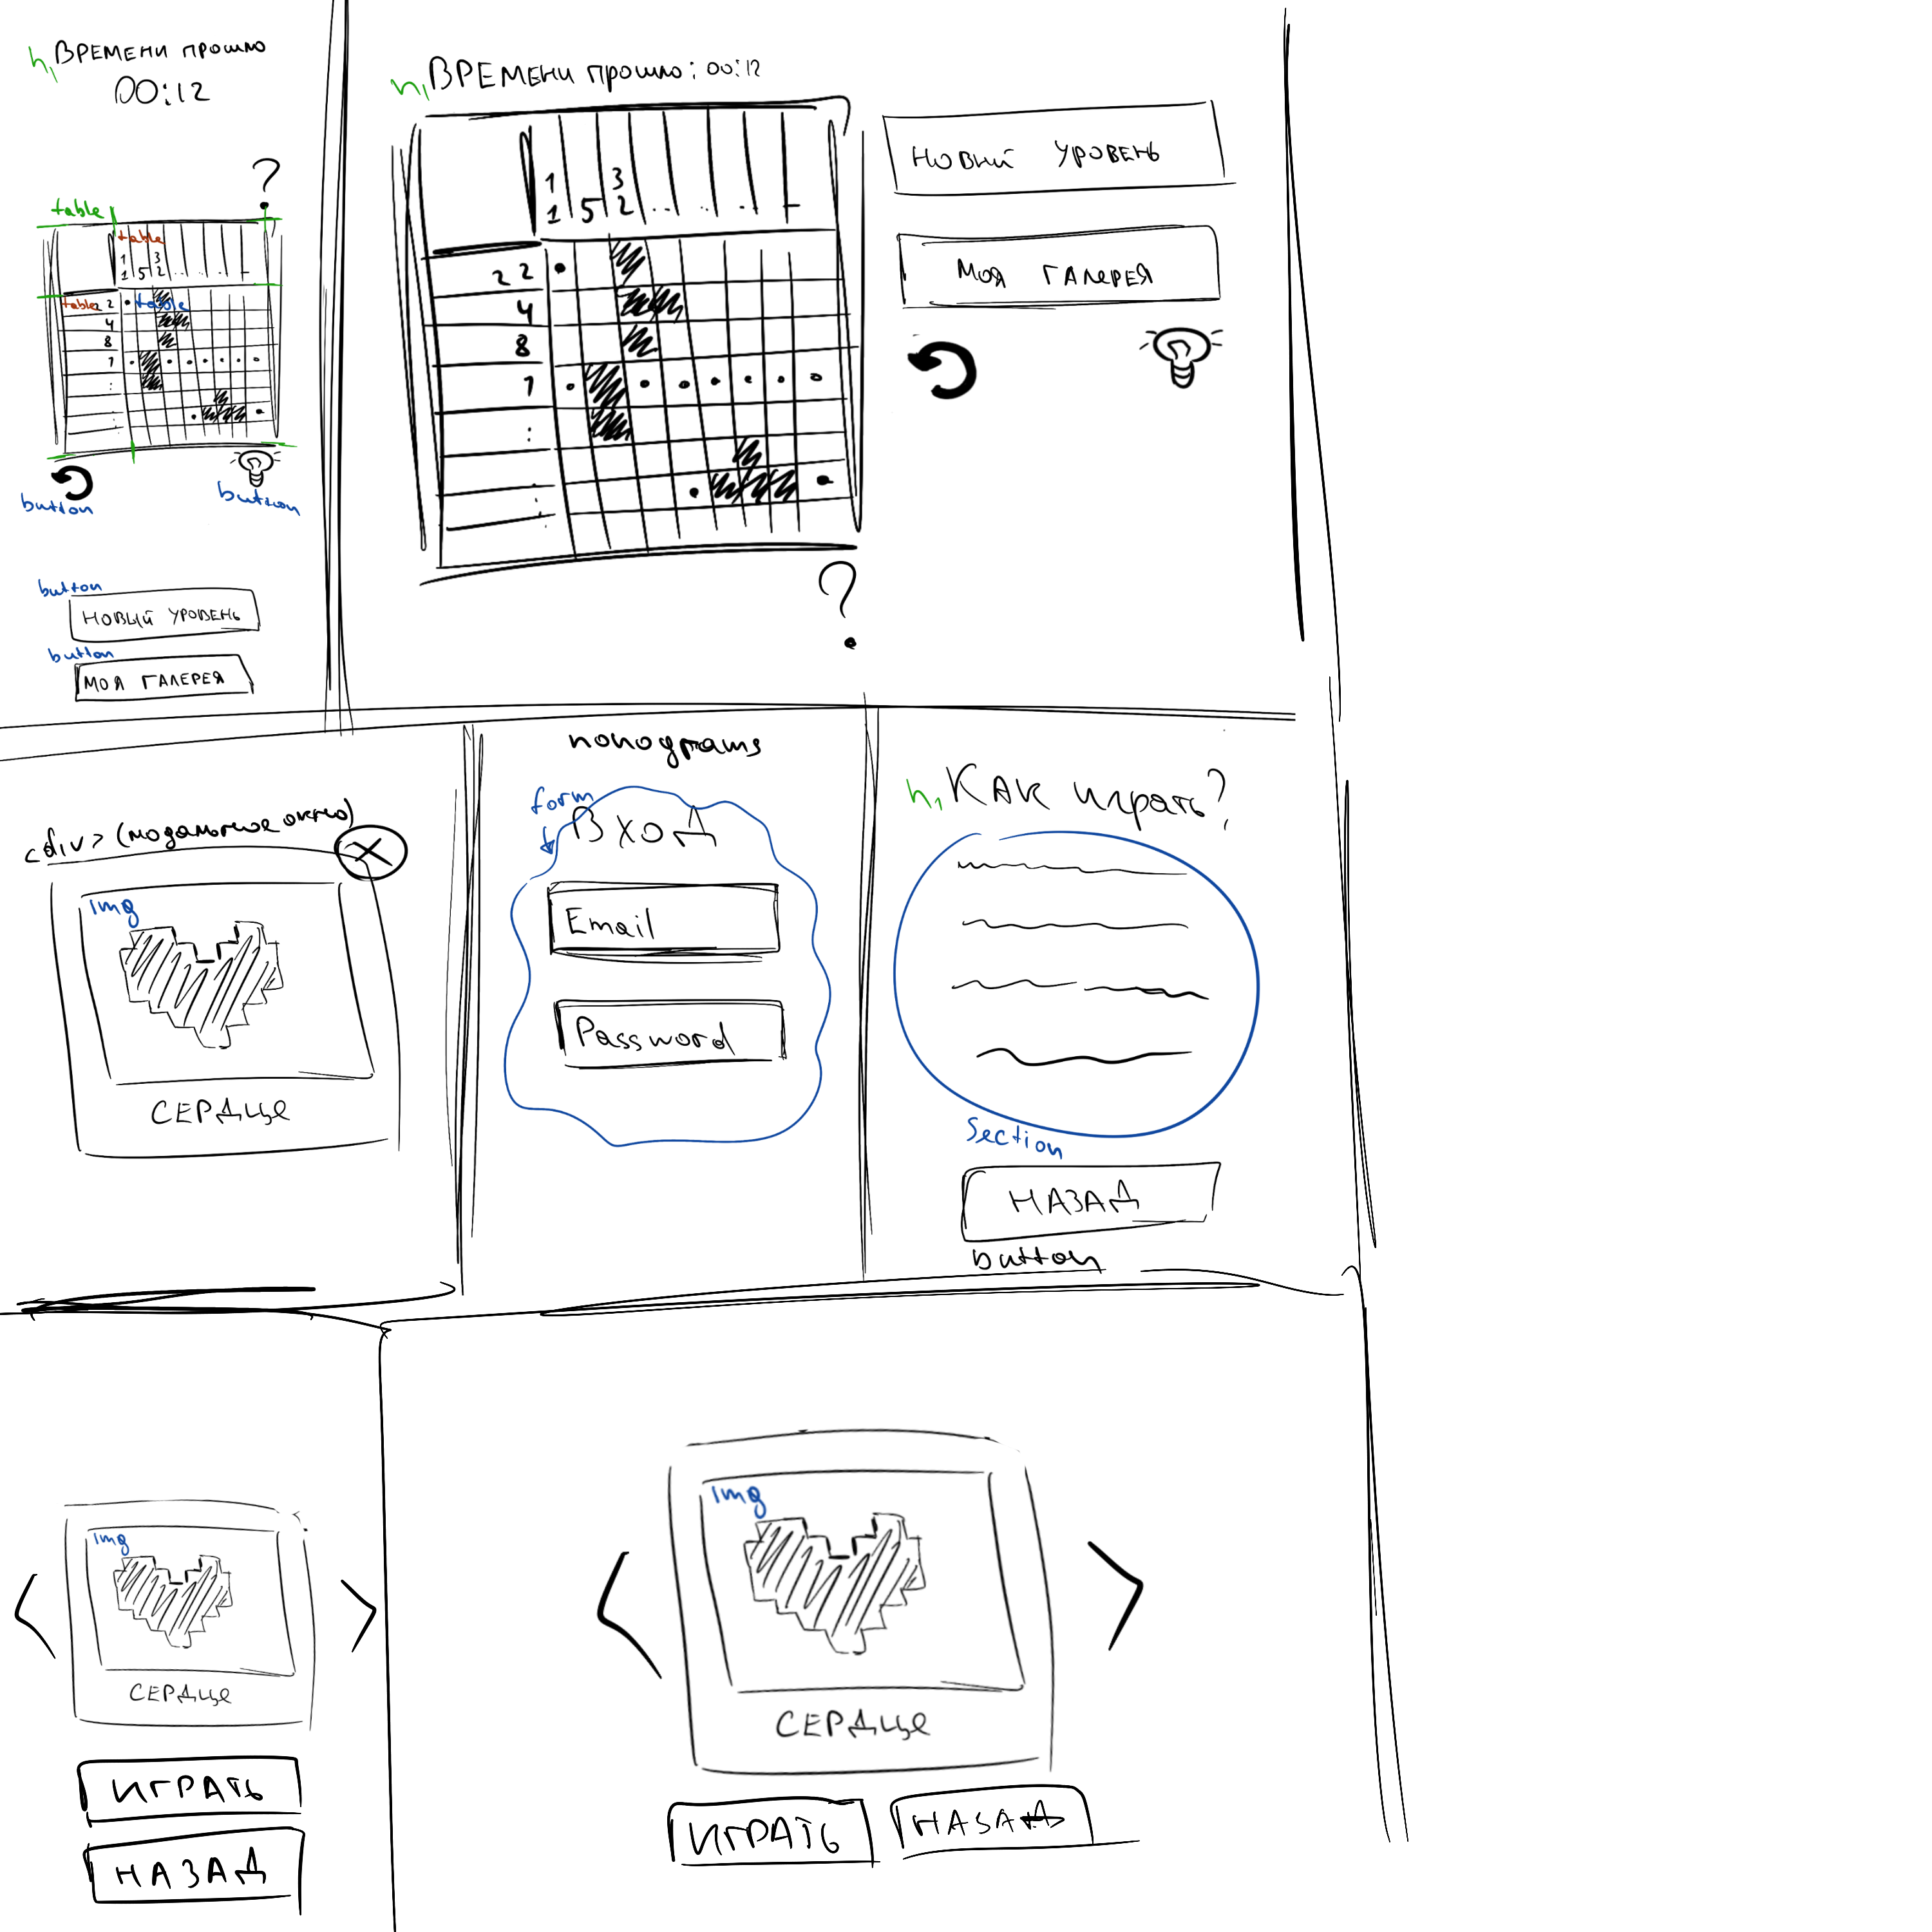 h1 ВРЕМЕНИ ПРОШЛО
00:12
?
table
table
1 3
1 5 2 ..
table 2 2 table
4
8
1
:
button
button
button
НОВЫЙ УРОВЕНЬ
button
МОЯ ГАЛЕРЕЯ
h1 ВРЕМЕНИ ПРОШЛО: 00:12
1 3
1 5 2 .. .. ..
2 2
4
8
1
:
:
?
НОВЫЙ УРОВЕНЬ
МОЯ ГАЛЕРЕЯ
<div> (модальное окно)
X
img
СЕРДЦЕ
nonograms
form
ВХОД
Email
Password
h1 КАК играть?
Section
НАЗАД
button
<
img
>
СЕРДЦЕ
ИГРАТЬ
НАЗАД
<
img
>
СЕРДЦЕ
ИГРАТЬ НАЗАД